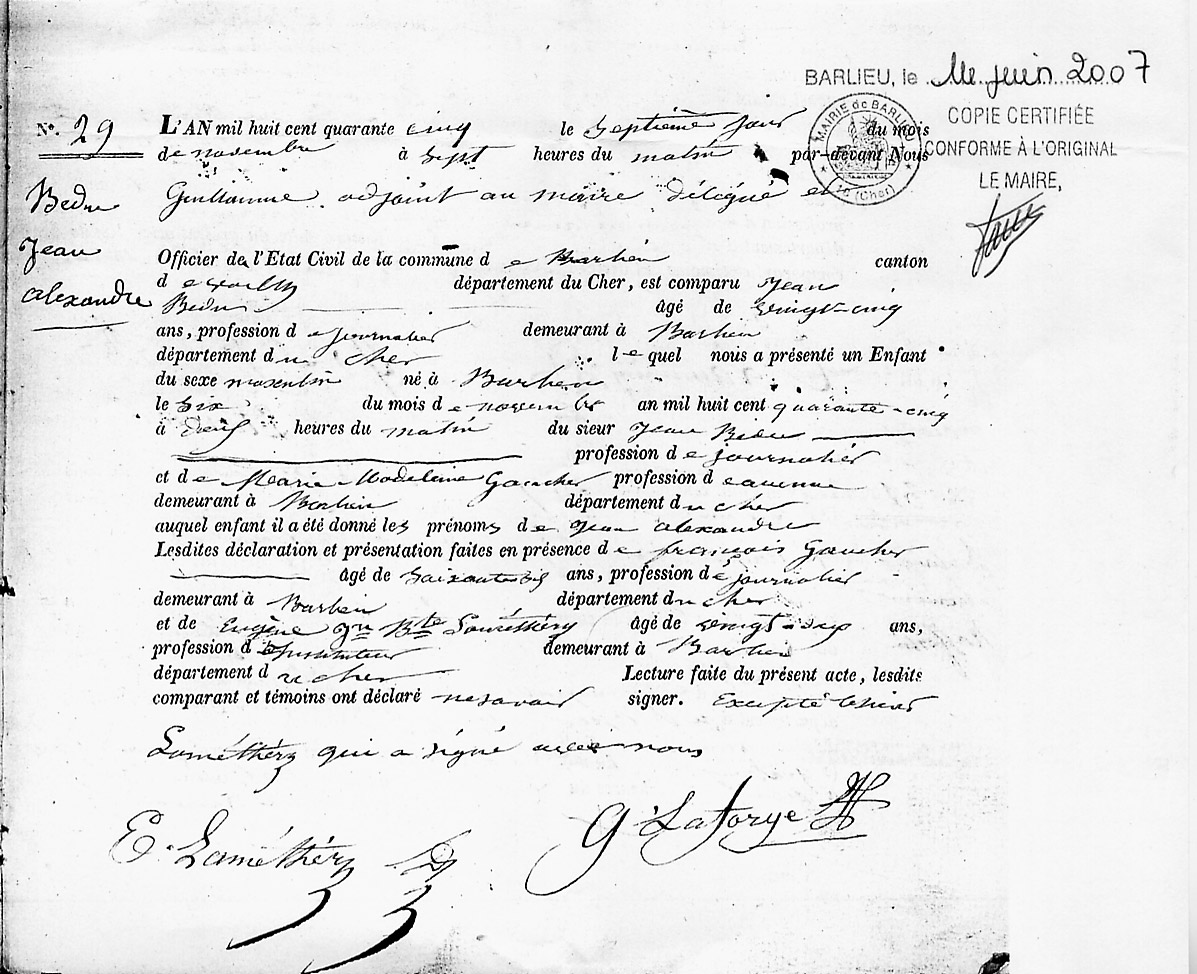 BARLIEU, le 11e juin 2007
COPIE CERTIFIÉE
CONFORME À L'ORIGINAL
LE MAIRE,
MAIRIE de BARLIEU
(Cher)
N°. 29
Bedu
Jean
alexandre
L'AN mil huit cent quarante cinq le Septième jour du mois
de novembre à Sept heures du matin par-devant Nous
Guillaume adjoint au maire délégué et
Officier de l'Etat Civil de la commune de Barlieu canton
de vailly département du Cher, est comparu Jean
Bedu âgé de vingt-cinq
ans, profession de journalier demeurant à Barlieu
département du cher lequel nous a présenté un Enfant
du sexe masculin né à Barlieu
le Six du mois de novembre an mil huit cent quarante-cinq
à heures du matin du sieur Jean Bedu
profession de journalier
et de Marie Madeleine Gaucher profession de
demeurant à Barlieu département du cher
auquel enfant il a été donné les prénoms de Jean alexandre
Lesdites déclaration et présentation faites en présence de françois Gaucher
âgé de ans, profession de journalier
demeurant à Barlieu département du cher
et de Eugène Jn Bte Laméthéry âgé de ans,
profession d instituteur demeurant à Barlieu
département du cher Lecture faite du présent acte, lesdits
comparant et témoins ont déclaré ne savoir signer. Excepté le sieur
Laméthéry qui a signé avec nous
E. Laméthéry
G. Laforge